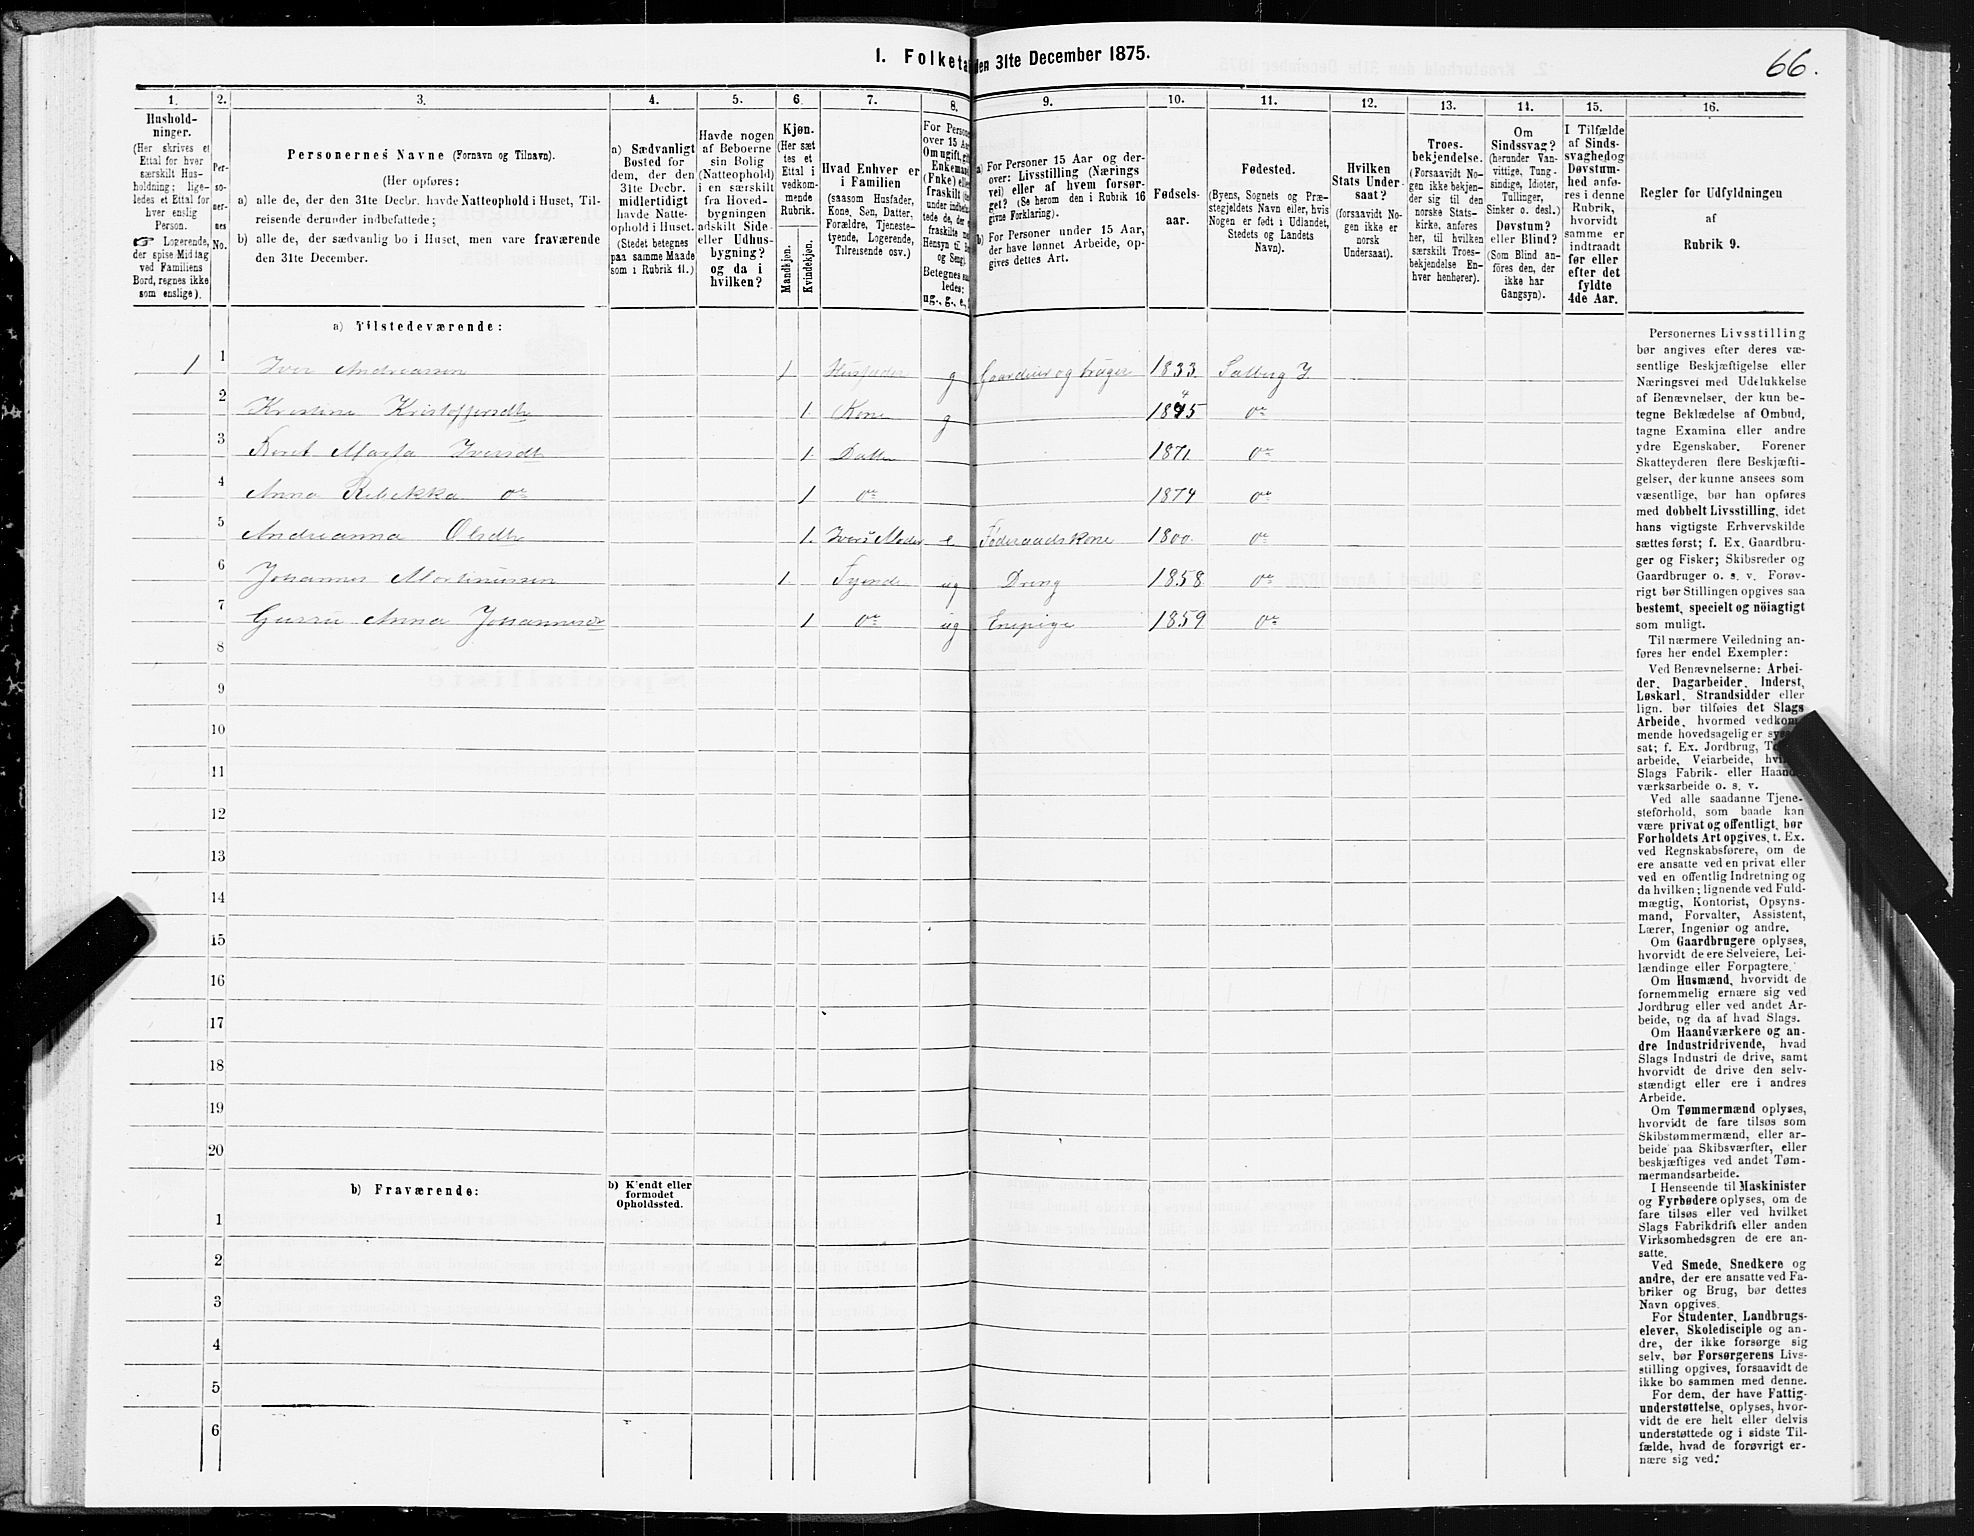 1. Folketa den 31te December 1875.
66.
1.
2.
3.
4.
5.
6.
7.
8.
9.
10.
11.
12.
13.
14.
15.
16.
Hushold-
ninger.
(Her skrives et
Ettal for hver
særskilt Hus-
holdning; lige-
ledes et Ettal for
hver enslig
Person.
☞ Logerende,
der spise Middag
ved Familiens
Bord, regnes ikke
som enslige).
Per-
so-
ner-
nes
No.
Personernes Navne (Fornavn og Tilnavn).
(Her opføres:
a) alle de, der den 31te Decbr. havde Natteophold i Huset, Til-
reisende derunder indbefattede;
b) alle de, der sædvanlig bo i Huset, men vare fraværende
den 31te December.
a) Sædvanligt
Bosted for
dem, der den
31te Decbr.
midlertidigt
havde Natte-
ophold i Huset.
(Stedet betegnes
paa samme Maade
som i Rubrik 11.)
Havde nogen
af Beboerne
sin Bolig
(Natteophold)
i en særskilt
fra Hoved-
bygningen
adskilt Side-
eller Udhus-
bygning?
og da i
hvilken?
Kjøn.
(Her sæt-
tes et
Ettal i
vedkom-
mende
Rubrik.
Mandkjøn.
Kvindekjøn.
Hvad Enhver er
i Familien
(saasom Husfader,
Kone, Søn, Datter,
Forældre, Tjeneste-
tyende, Logerende,
Tilreisende osv.)
For Persone
over 15 Aa
Om ugift, gif
Enkemand
(Enke) elle
fraskilt
under indbe
tede de, der
fraskilte
Hensyn til B
og Seng).
Betegnes saa
ledes:
ug., g., e.,
a) For Personer 15 Aar og der-
over: Livsstilling (Nærings
vei) eller af hvem forsør-
get? (Se herom den i Rubrik 16
givne Forklaring).
b) For Personer under 15 Aar,
der have lønnet Arbeide, op-
gives dettes Art.
Fødsels-
aar.
Fødested.
(Byens, Sognets og Præ-
stegjeldets Navn eller, hvis
Nogen er født i Udlandet,
Stedets og Landets
Navn).
Hvilken
Stats Under-
saat?
(forsaavidt No-
gen ikke er
norsk
Undersaat).
Troes-
bekjendelse.
(Forsaavidt No-
gen ikke bekjen-
der sig til den
norske Stats-
kirke, anføres
her, til hvilken
særskilt Troes-
bekjendelse En-
hver henhører).
Om
Sindssvag?
(herunder Van-
vittige, Tung-
sindige, Idioter,
Tullinger,
Sinker o. desl.)
Døvstum?
eller Blind?
(Som Blind an-
føres den, der
ikke har
Gangsyn).
I Tilfælde
af Sinds-
svaghed og
Døvstum-
hed anfø-
res i denne
Rubrik,
hvorvidt
samme er
indtraadt
før eller
efter det
fyldte
4de Aar.
Regler for Udfyldningen
af
Rubrik 9.
a) Tilstedeværende:
1 1 Iver Andreassen 1 Husfader g Gaardeier og bruger 1833 Salberg Y.
2 Kristine Kristoffersdtr 1. Kone g 1845 do
3 Beret Marja Iversdtr 1. Datter 1871 do
4 Anna Rebekka do 1 do 1874 do
5 Andreanna Olsdtr 1. Ivers Moder e Føderaadskone 1800 do
6 Johannes Martinussen 1. Tyende ug Dreng 1858 do
7 Gurru Anna Johannesdr 1 do ug 1859 do
8
9
10
11
12
13
14
15
16
17
18
19
20
b) Fraværende:
b) Kjendt eller
formodet
Opholdssted.
1
2
3
4
5
6
Personernes Livsstilling
bør angives efter deres væ-
sentlige Beskjæftigelse eller
Næringsvei med Udelukkelse
af Benævnelser, der kun be-
tegne Beklædelse af Ombud,
tagne Examina eller andre
ydre Egenskaber. Forener
Skatteyderen flere Beskjæfti-
gelser, der kunne ansees som
væsentlige, bør han opføres
med dobbelt Livsstilling, idet
hans vigtigste Erhvervskilde
sættes først; f. Ex. Gaardbru-
ger og Fisker; Skibsreder og
Gaardbruger o. s. v. Forøv-
rigt bør Stillingen opgives saa
bestemt, specielt og nöiagtigt
som muligt.
Til nærmere Veiledning an-
føres her endel Exempler:
Ved Benævnelserne: Arbei-
der, Dagarbeider, Inderst,
Løskarl, Strandsidder eller
lign. bør tilføies det Slags
Arbeide, hvormed vedkom-
mende hovedsagelig er sys
sat; f. Ex. Jordbrug, T
arbeide, Veiarbeide, hvi
Slags Fabrik- eller Haand
værksarbeide o. s. v.
Ved alle saadanne Tjene-
steforhold, som baade kan
være privat og offentligt, bør
Forholdets Art opgives, t. Ex.
ved Regnskabsførere, om de
ere ansatte ved en privat eller
ved en offentlig Indretning og
da hvilken; lignende ved Fuld-
mægtig, Kontorist, Opsyns-
mand, Forvalter, Assistent,
Lærer, Ingeniør og andre.
Om Gaardbrugere oplyses,
hvorvidt de ere Selveiere, Lei-
lændinge eller Forpagtere.
Om Husmænd, hvorvidt de
fornemmelig ernære sig ved
Jordbrug eller ved andet Ar-
beide, og da af hvad Slags.
Om Haandværkere og an-
dre Industridrivende, hvad
Slags Industri de drive, samt
hvorvidt de drive den selv-
stændigt eller ere i andres
Arbeide.
Om Tømmermænd oplyses,
hvorvidt de fare tilsøs som
Skibstømmermænd, eller ar-
beide paa Skibsværfter, eller
beskjæftiges ved andet Tøm-
mermandsarbeide.
I Henseende til Maskinister
og Fyrbødere oplyses, om de
fare tilsøs eller ved hvilket
Slags Fabrikdrift eller anden
Virksomhedsgren de ere an-
satte.
Ved Smede, Snedkere og
andre, der ere ansatte ved Fa-
briker og Brug, bør dettes
Navn opgives.
For Studenter, Landbrugs-
elever, Skoledisciple og an-
dre, der ikke forsørge sig
selv, bør Forsørgerens Livs-
stilling opgives, forsaavidt de
ikke bo sammen med denne.
For dem, der have Fattig-
understøttelse, oplyses, hvor-
vidt de ere helt eller delvis
understøttede og i sidste Til-
fælde, hvad de forøvrigt er-
nære sig ved.